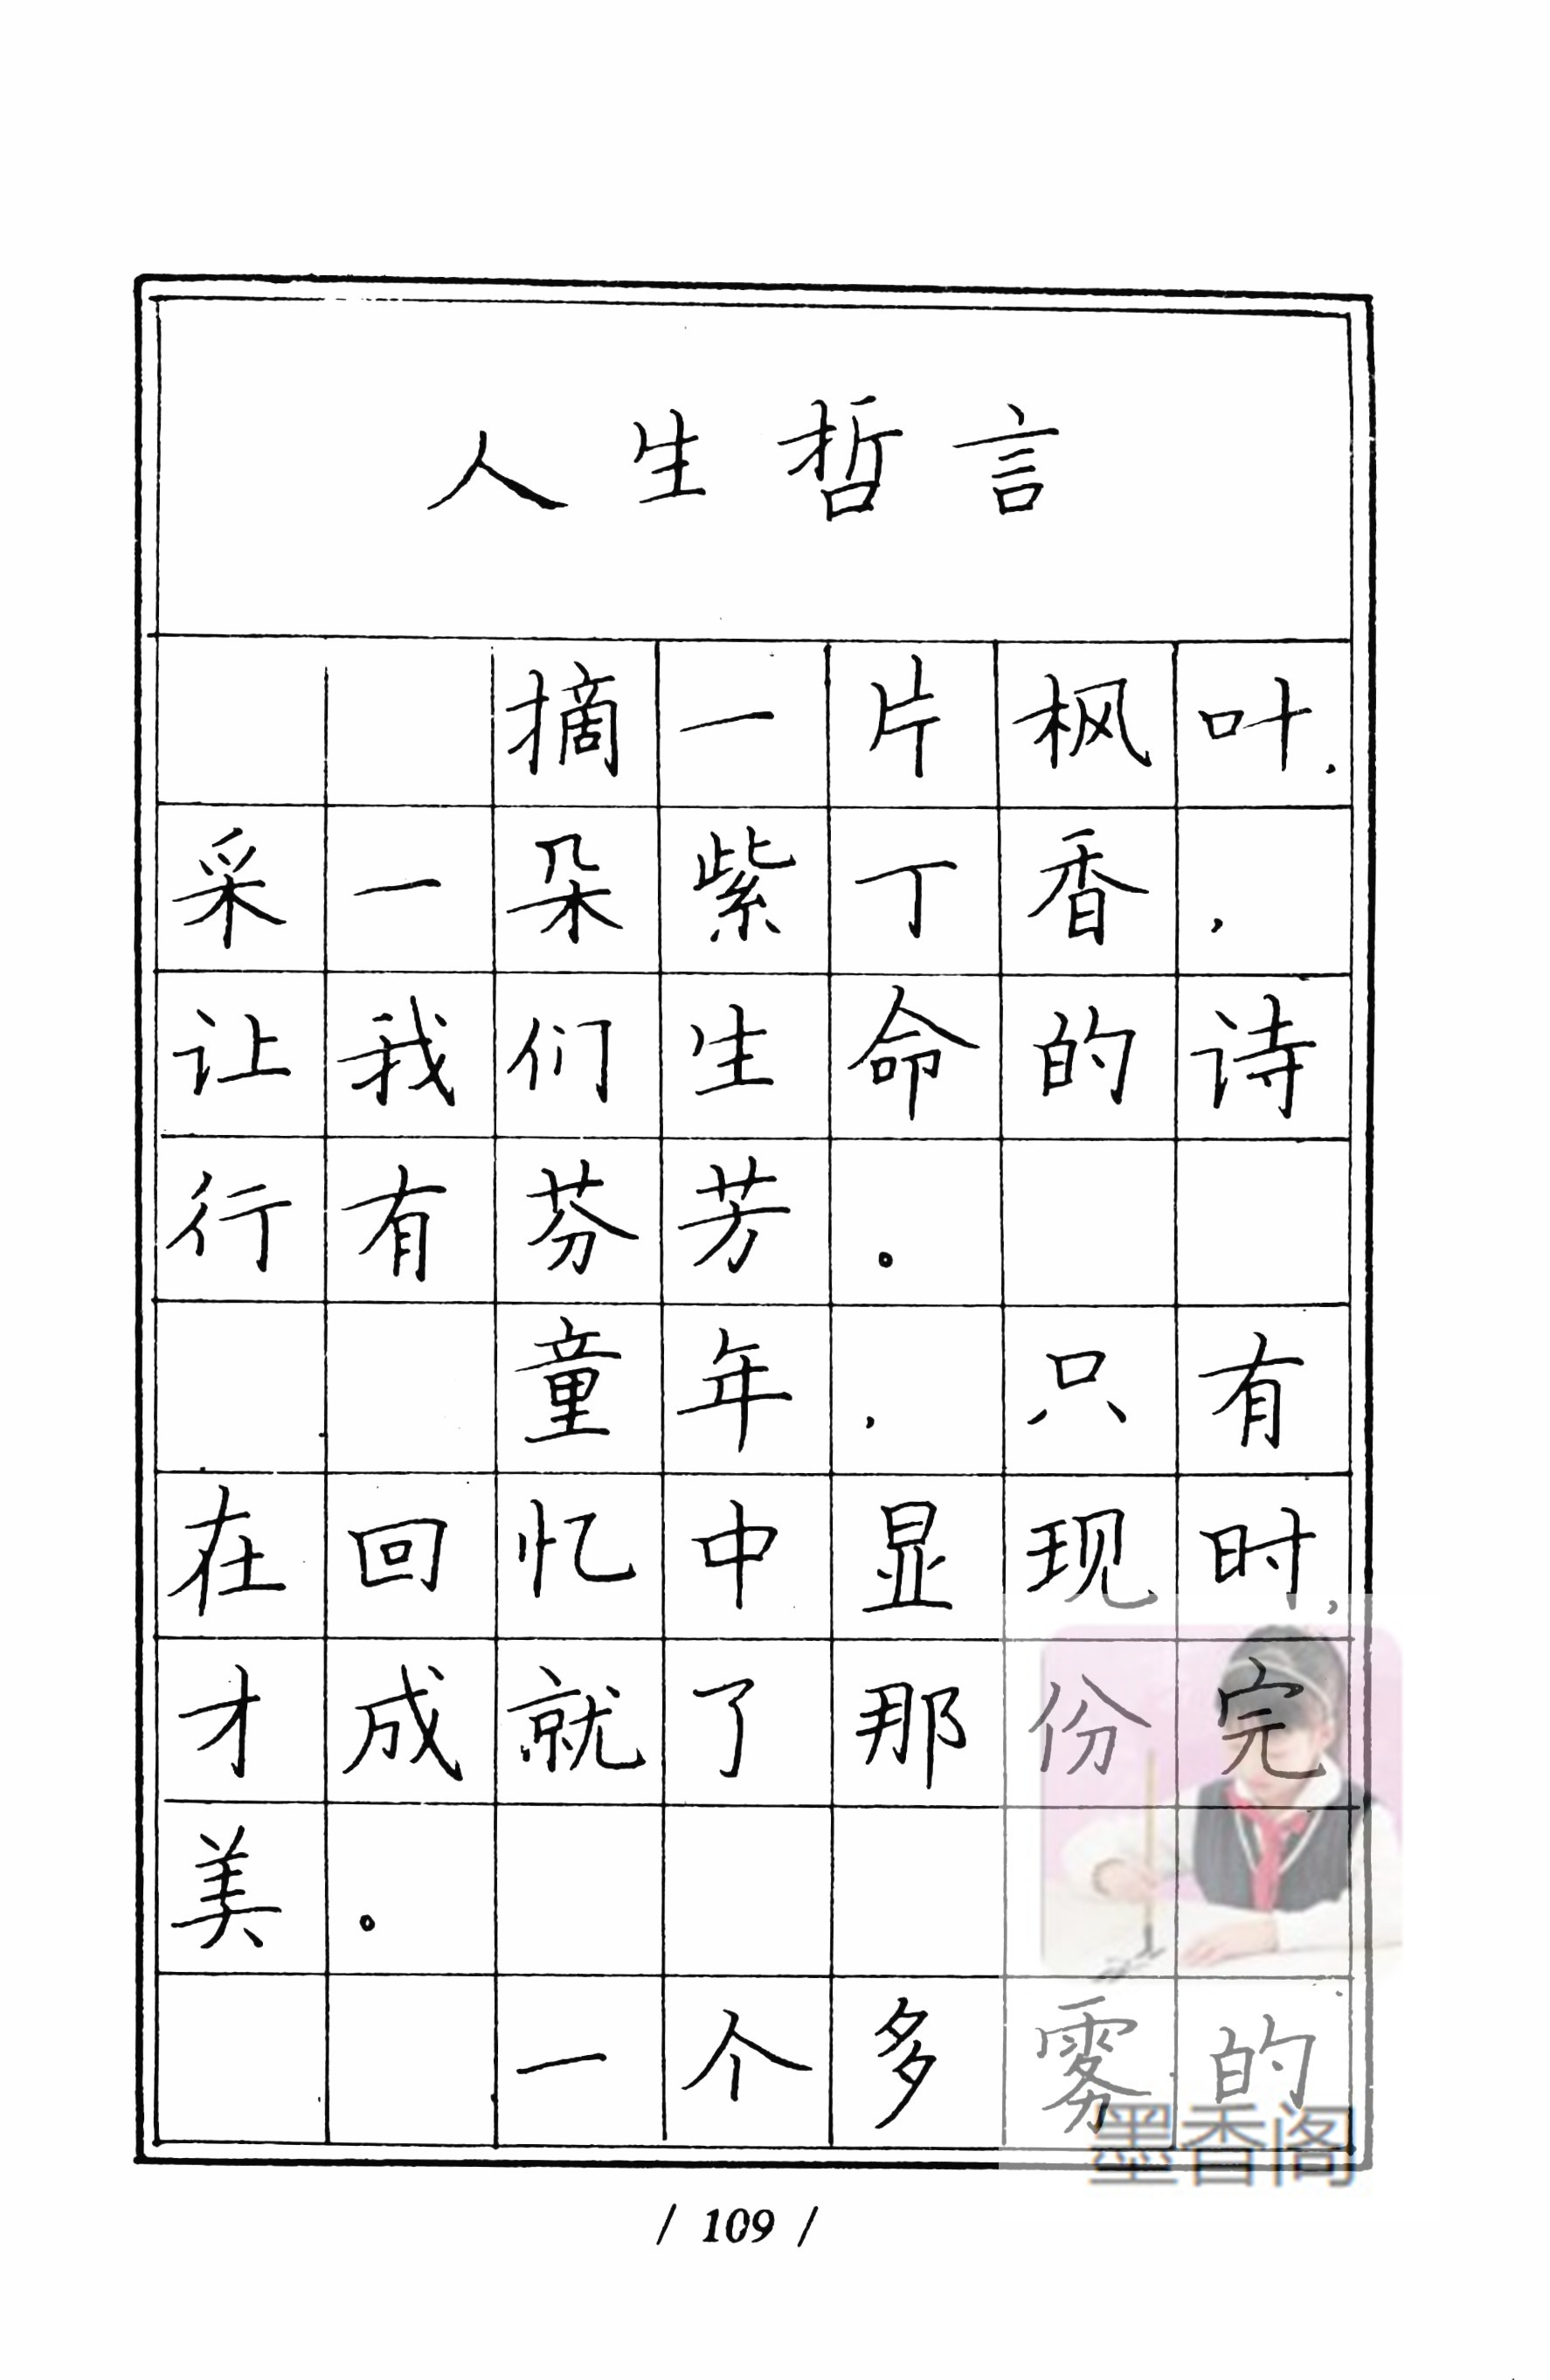 人生哲言
摘一片枫叶，
采一朵紫丁香，
让我们生命的诗
行有芬芳。
童年，只有
在回忆中显现时，
才成就了那份完
美。
一个多雾的
墨香阁
/ 109 /